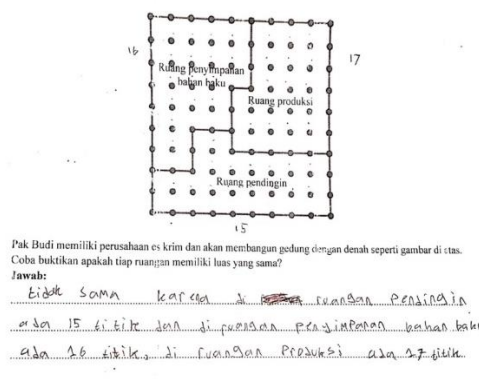 16
17
Ruang penyimpanan
bahan baku
Ruang produksi
Ruang pendingin
15
Pak Budi memiliki perusahaan es krim dan akan membangun gedung dengan denah seperti gambar di atas.
Coba buktikan apakah tiap ruangan memiliki luas yang sama?
Jawab:
tidak sama karena di ruangan pendingin
ada 15 titik dan di ruangan penyimpanan bahan baku
ada 16 titik, di ruangan produksi ada 17 titik